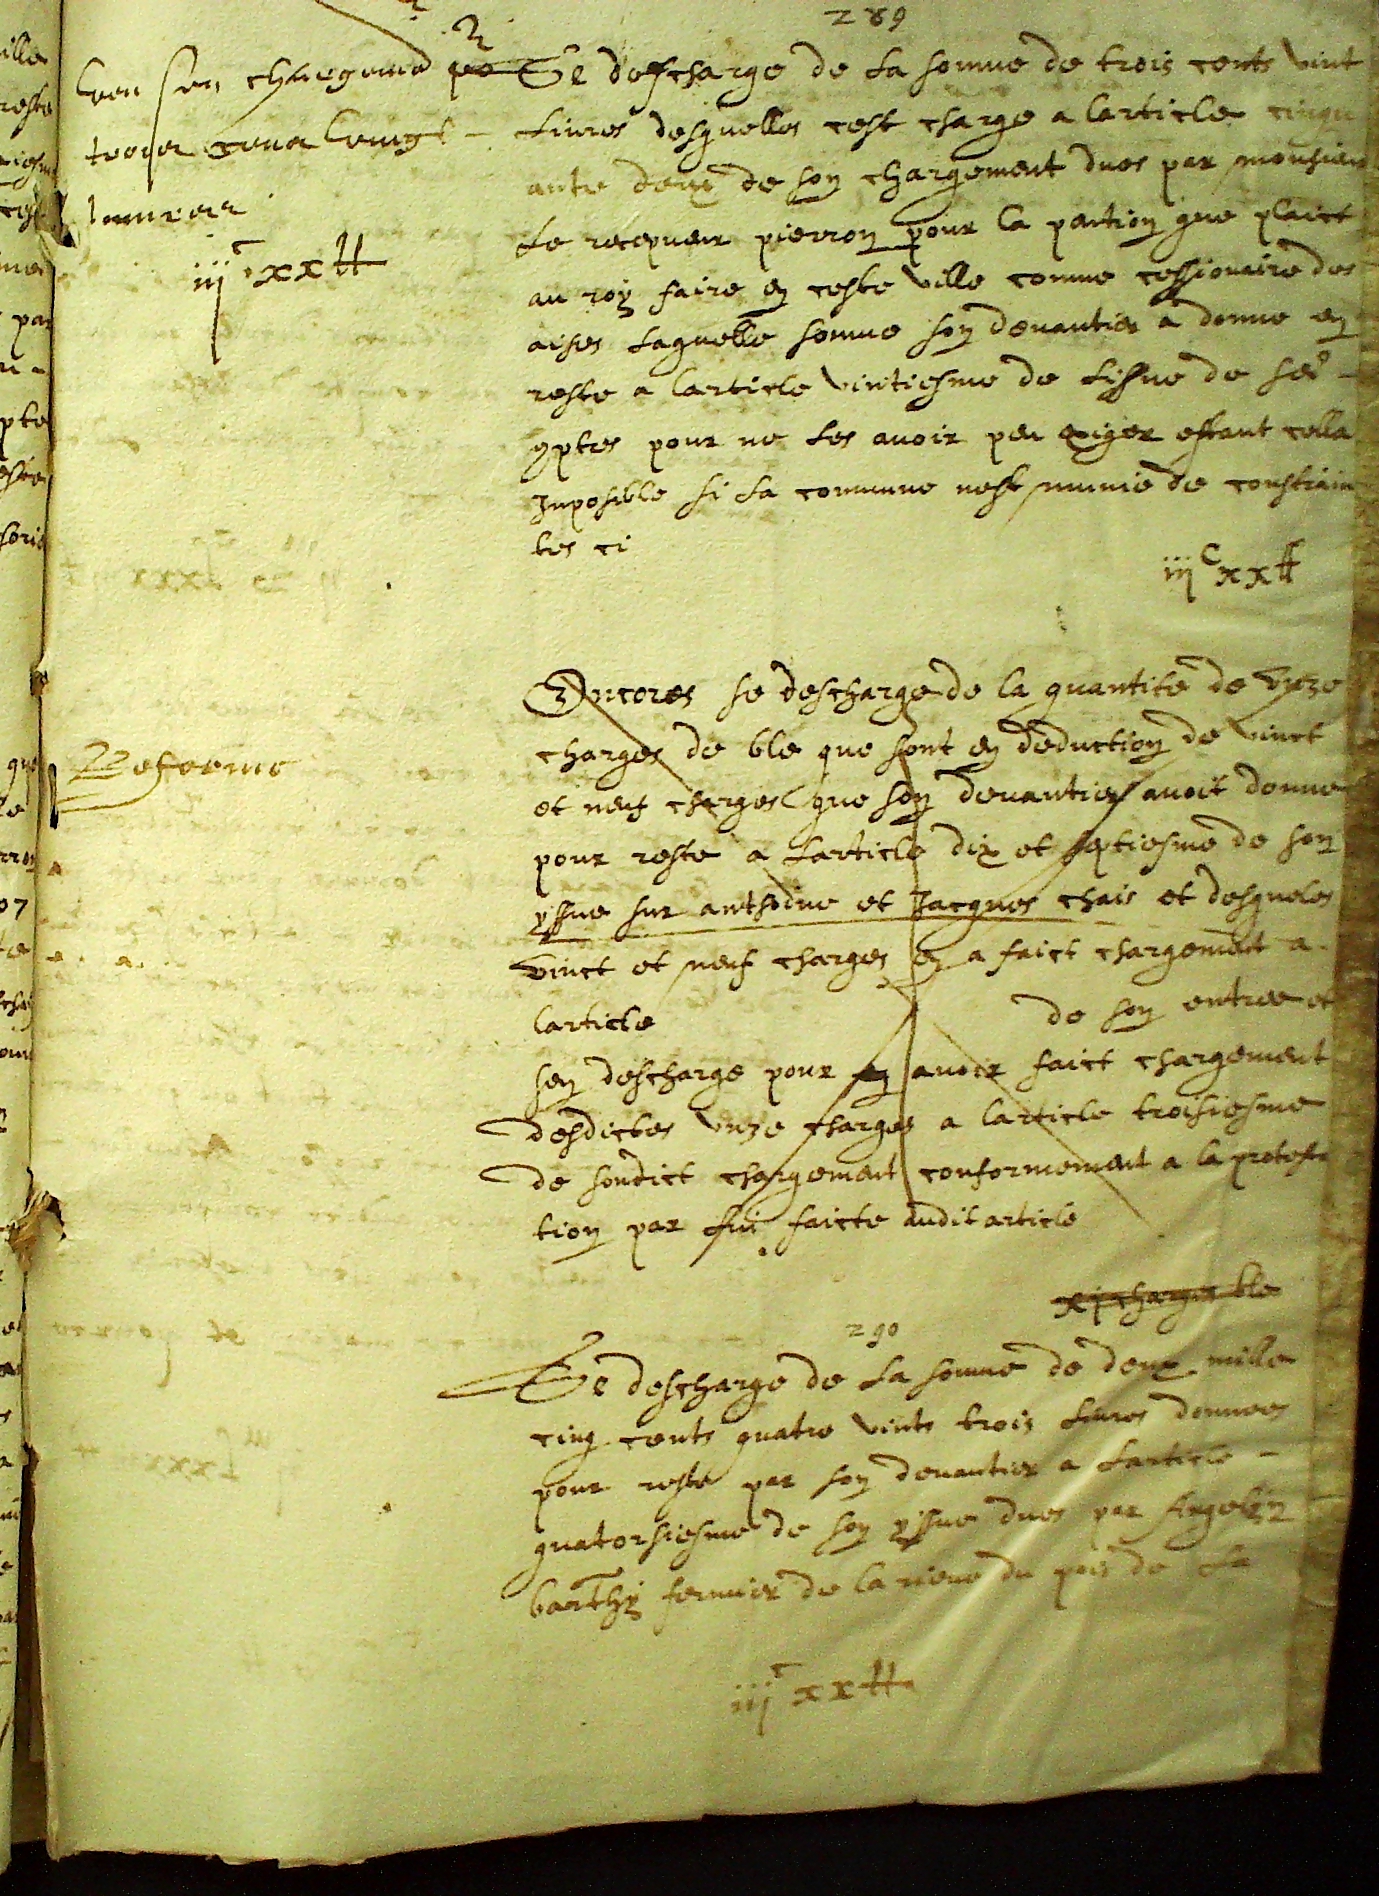 289
Se descharge de la somme de trois cents vint
livres desquelles cest charge a larticle cinqu
ante deux de son chargement dues par monsieur
le recepveur pierron pour la portion que plaict
au roy faire en ceste ville comme cessionaire des
aises laquelle somme son devantier a donne en
reste a larticle vintiesme de lissue de ses
comptes pour ne les avoir peu exiger estant cella
Imposible si la commune nest munie de constrain
tes ci
iijC xx ℔
iijC xx ℔
Encores se descharge de la quantite de unze
charges de ble que sont en deduction de vinct
et neuf charges que son devantier avoit donne
pour reste a larticle dix et septiesme de son
yssue sur anthoine et Jacques chais et desqueles
vinct et neuf charges en a faict chargement a
larticle de son entree et
sen descharge pour en avoir faict chargement
desdictes unze charges a larticle troisiesme
de sondict chargement conformement a la protesta
tion par lui faicte audit article
xj charges ble
290
Se descharge de la somme de deux mille
cinq cents quatre vints trois livres donnees
pour reste par son devantier a larticle
quatorsiesme de son yssue dues par Angelin
barthy fermier de la rieve du pois de la
iijC xx ℔